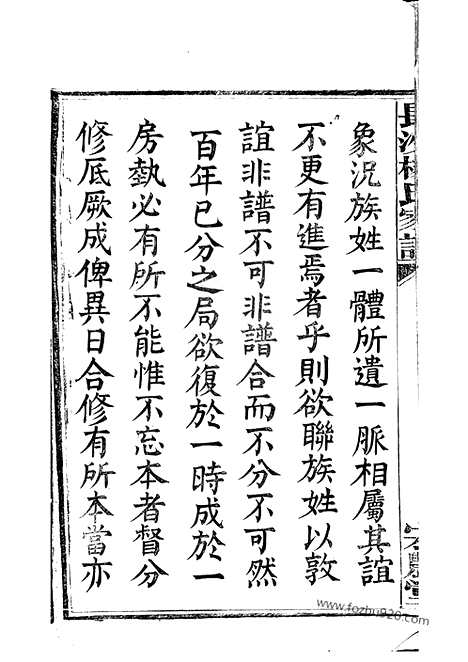 象況族姓一體所遺一脈相屬其誼
不更有進焉者乎則欲聯族姓以敦
誼非譜不可非譜合而不分不可然
百年已分之局欲復於一時成於一
房埶必有所不能惟不忘本者督分
修厎厥成俾異日合修有所本當亦
www.fozhu920.com